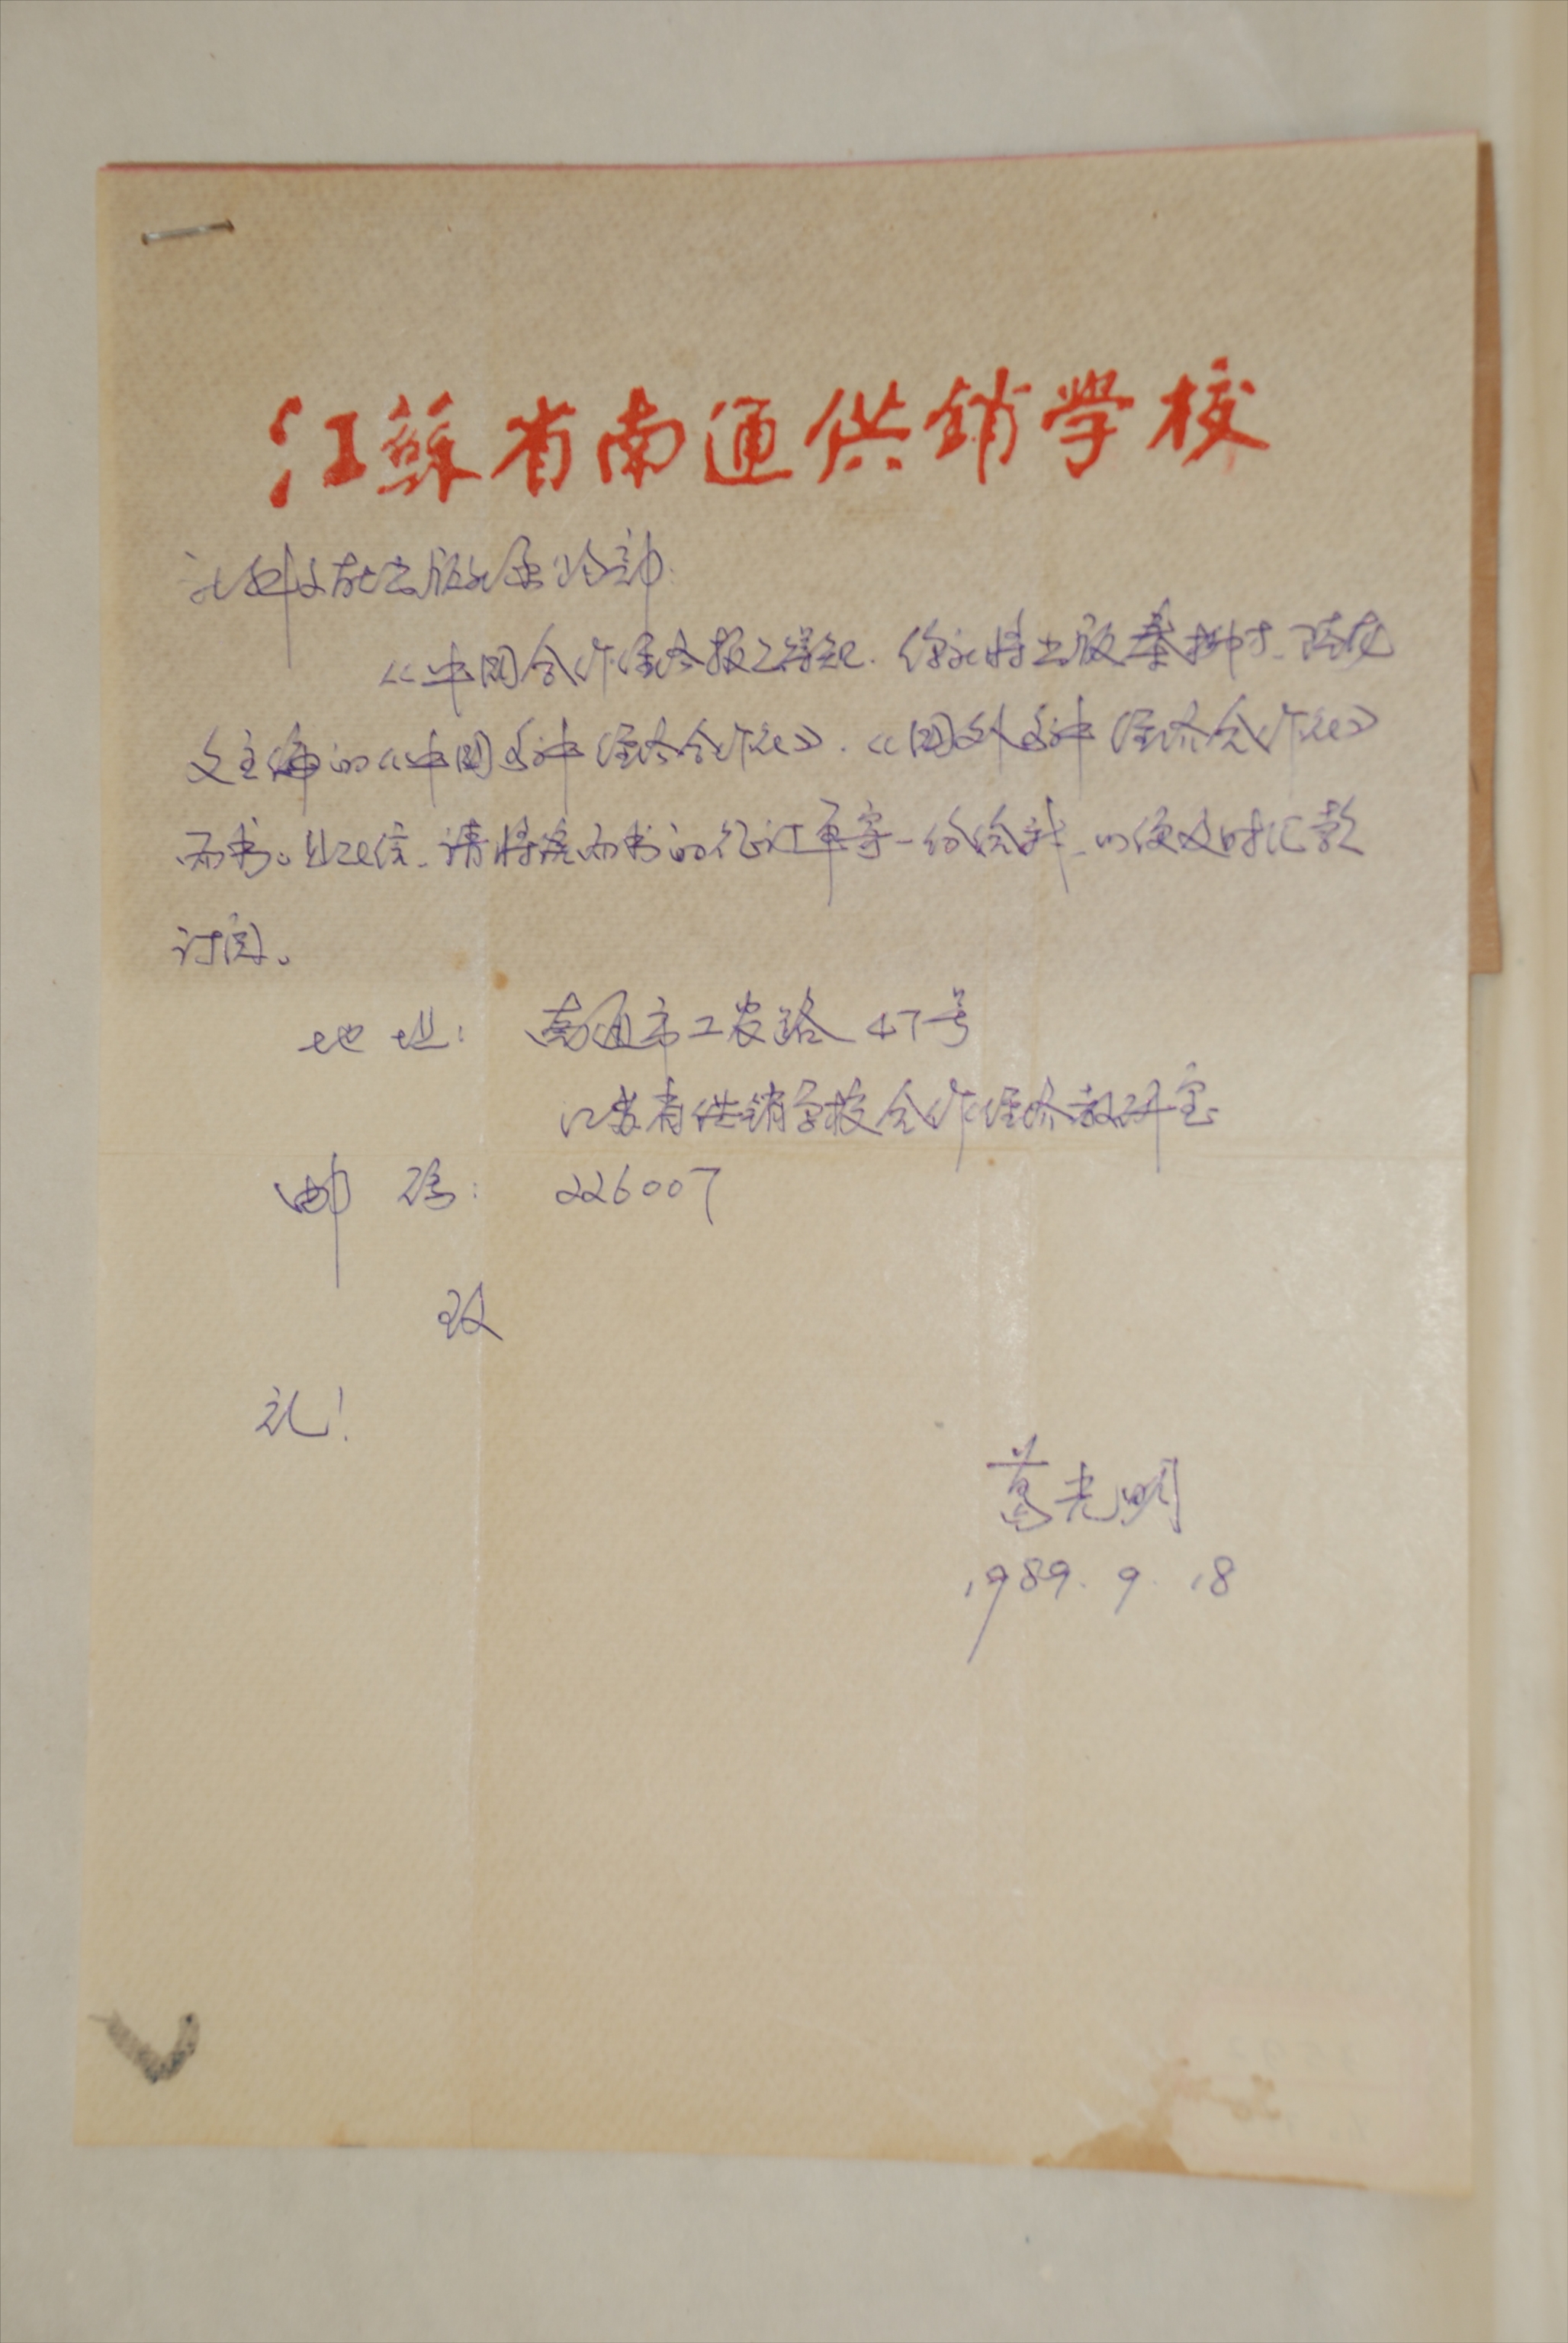 江蘇省南通供銷学校
社科文献出版社发行部:
《中国合作经济报》得知. 你社将出版秦柳方、陆龙
文主编的《中国各种经济合作社》.《国外各种经济合作社》
两书。见信、请将该两书的征订单寄一份给我、以便及时汇款
订阅。
地址: 南通市工农路47号
江苏省供销学校合作经济教研室
邮码: 226007
致
礼!
葛光明
1989. 9. 18